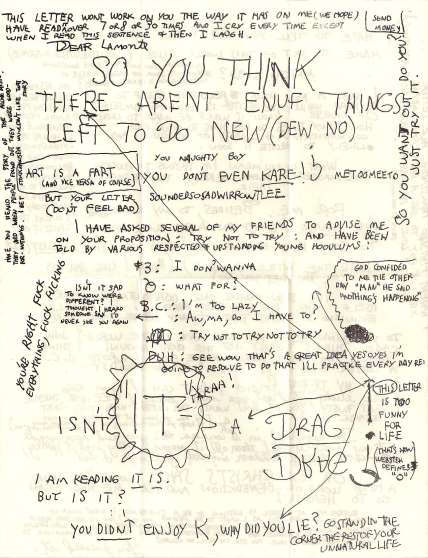 THIS LETTER WONT WORK ON YOU THE WAY IT HAS ON ME (WE HOPE)
HAVE READ OVER 7 OR 8 OR 30 TIMES AND I CRY EVERY TIME EXCEPT
WHEN I READ THIS SENTENCE & THEN I LAUGH.
SEND
MONEY
DEAR LAMONTE
SO YOU THINK
THERE ARENT ENUF THINGS
LEFT TO DO NEW (DEW NO)
SO YOU WANT OUT DO YOU?
JUST TRY IT.
ART IS A FART
(AND VICE VERSA OF COURSE)
YOU NAUGHTY BOY
YOU DONT EVEN KARE!
ME TOO MEETO
BUT YOUR LETTER
(DON'T FEEL BAD)
SOUNDERSOSADWIRROWTLEE
I HAVE ASKED SEVERAL OF MY FRIENDS TO ADVISE ME
ON YOUR PROPOSITION & TRY NOT TO TRY & AND HAVE BEEN
TOLD BY VARIOUS RESPECTED & UPSTANDING YOUNG HOODLUMS:
#3: I DON WANNA
: WHAT FOR?
B.C.: I'M TOO LAZY
: AW, MA, DO I HAVE TO?
: TRY NOT TO TRY NOT TO TRY
DUH: GEE WOW THAT'S A GREAT IDEA YESOYES I'M
GOING TO RESOLVE TO DO THAT I'LL PRACTICE EVERY DAY
GOD CONFIDED
TO ME THE OTHER
DAY "MAN" HE SAID
"NOTHING'S HAPPENING"
ISN'T IT SAD
TO KNOW WE'RE
DIFFERENT? I
THOUGHT I HEARD
SOMEONE SAY I'D
NEVER SEE YOU AGAIN
YOU'RE RIGHT, FUCK
EVERYTHING, FUCK FUCKING
TARAA!
ISNT
IT
A
DRAG
DRAG
THIS LETTER
IS TOO
FUNNY
FOR
LIFE
(THAT'S HOW
WEBSTER
DEFINES
"O")
I AM READING IT IS.
BUT IS IT?
YOU DIDNT ENJOY K, WHY DID YOU LIE? GO STAND IN THE
CORNER THE REST OF YOUR
UNNATURAL LIFE